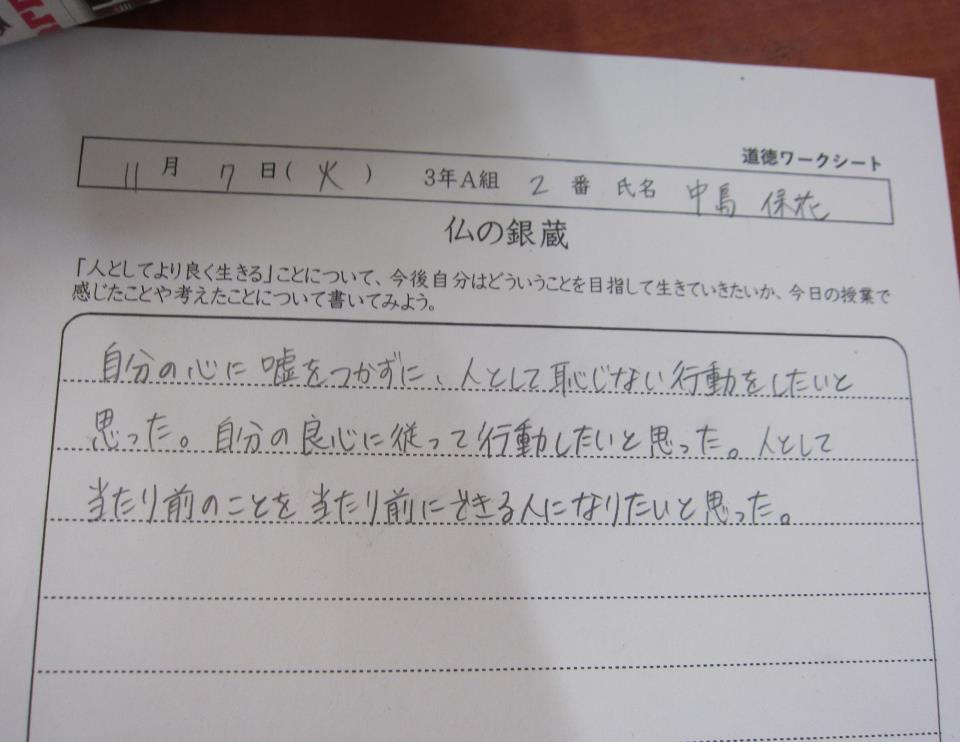 道徳ワークシート
11月 7日(火) 3年A組 2番 氏名 中島 保花
仏の銀蔵
「人としてより良く生きる」ことについて、今後自分はどういうことを目指して生きていきたいか、今日の授業で
感じたことや考えたことについて書いてみよう。
自分の心に嘘をつかずに、人として恥じない行動をしたいと
思った。自分の良心に従って行動したいと思った。人として
当たり前のことを当たり前にできる人になりたいと思った。